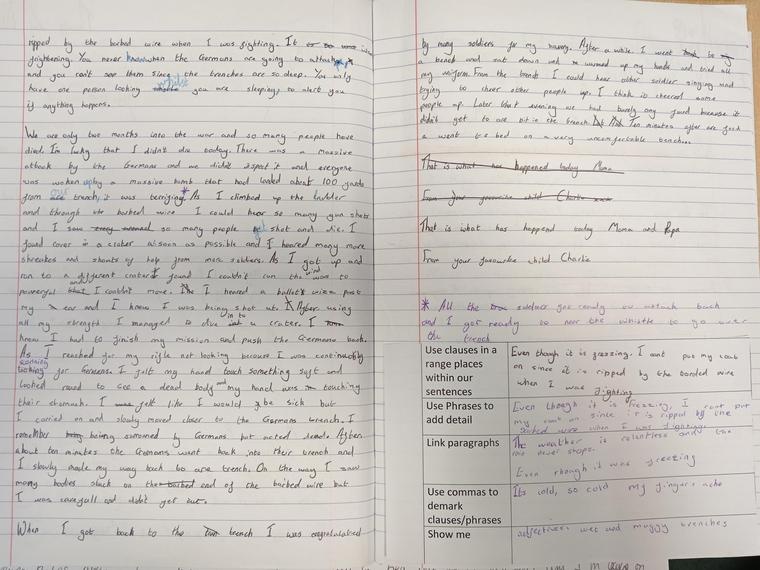 ripped by the barbed wire when I was fighting. It
frightening. You never know when the Germans are going to attack
and you can't see them since the trenches are so deep. You only
have one person looking while you are sleeping, to alert you
if anything happens.
We are only two months into the war and so many people have
died. I'm lucky that I didn't die today. There was a massive
attack by the Germans and we didn't expect it and everyone
was woken up by a massive bomb that had landed about 100 yards
from our trench, it was terrifing.* As I climbed up the ladder
and through the barbed wire I could hear so many gun shots
and I saw so many people get shot and die. I
found cover in a crater as soon as possible and I heared many more
shreakes and shouts of help from more soldiers. As I got up and
ran to a different crater I found I couldn't run the wind was to
powerful and I couldn't move. I heared a bullet wizz past
my ear and I knew I was being shot at. After using
all my strength I managed to dive into a crater. I
knew I had to finish my mission and push the Germans back.
As I reached for my rifle not looking because I was continuously
scanning for Germans. I felt my hand touch something soft and
looked round to see a dead body and my hand was touching
their stomach. I felt like I would be sick but
I carried on and slowly moved closer to the Germans trench. I
remember being surrounded by Germans but acted dead. After
about ten minutes the Germans went back into their trench and
I slowly made my way back to are trench. On the way I saw
many bodies stuck on the end of the barbed wire but
I was carefull and didn't get
When I got back to the trench I was congratulated
by many soldiers for my bravery. After a while I went
a bench and sat down and warmed up my hands and dried all
my uniform. From the bench I could hear other soldier singing and
trying to cheer other people up. I think it cheered some
people up. Later that evening we had barely any food because it
didn't get to are bit in the trench. Ten minutes after are food
I went to bed on a very uncomfortable bench.
That is what has happened today Mama
From your favourite child Charlie
That is what has happend today Mama and Papa
From your favourite child Charlie
* All the soldiers got ready to attack back
and I got ready to hear the whistle to go over
the trench
Use clauses in a range places within our sentences
Even though it is frezzing, I cant put my coat
on since it is ripped by the barbed wire
when I was fighting
Use Phrases to add detail
Even though it is frezzing, I cant put
my coat on since it is ripped by the
barbed wire when I was fighting.
Link paragraphs
The weather is relentless and the
rain never stops.
Even though it was freezing
Use commas to demark clauses/phrases
Its cold, so cold my fingers ache
Show me
adjectives wet and muggy trenches